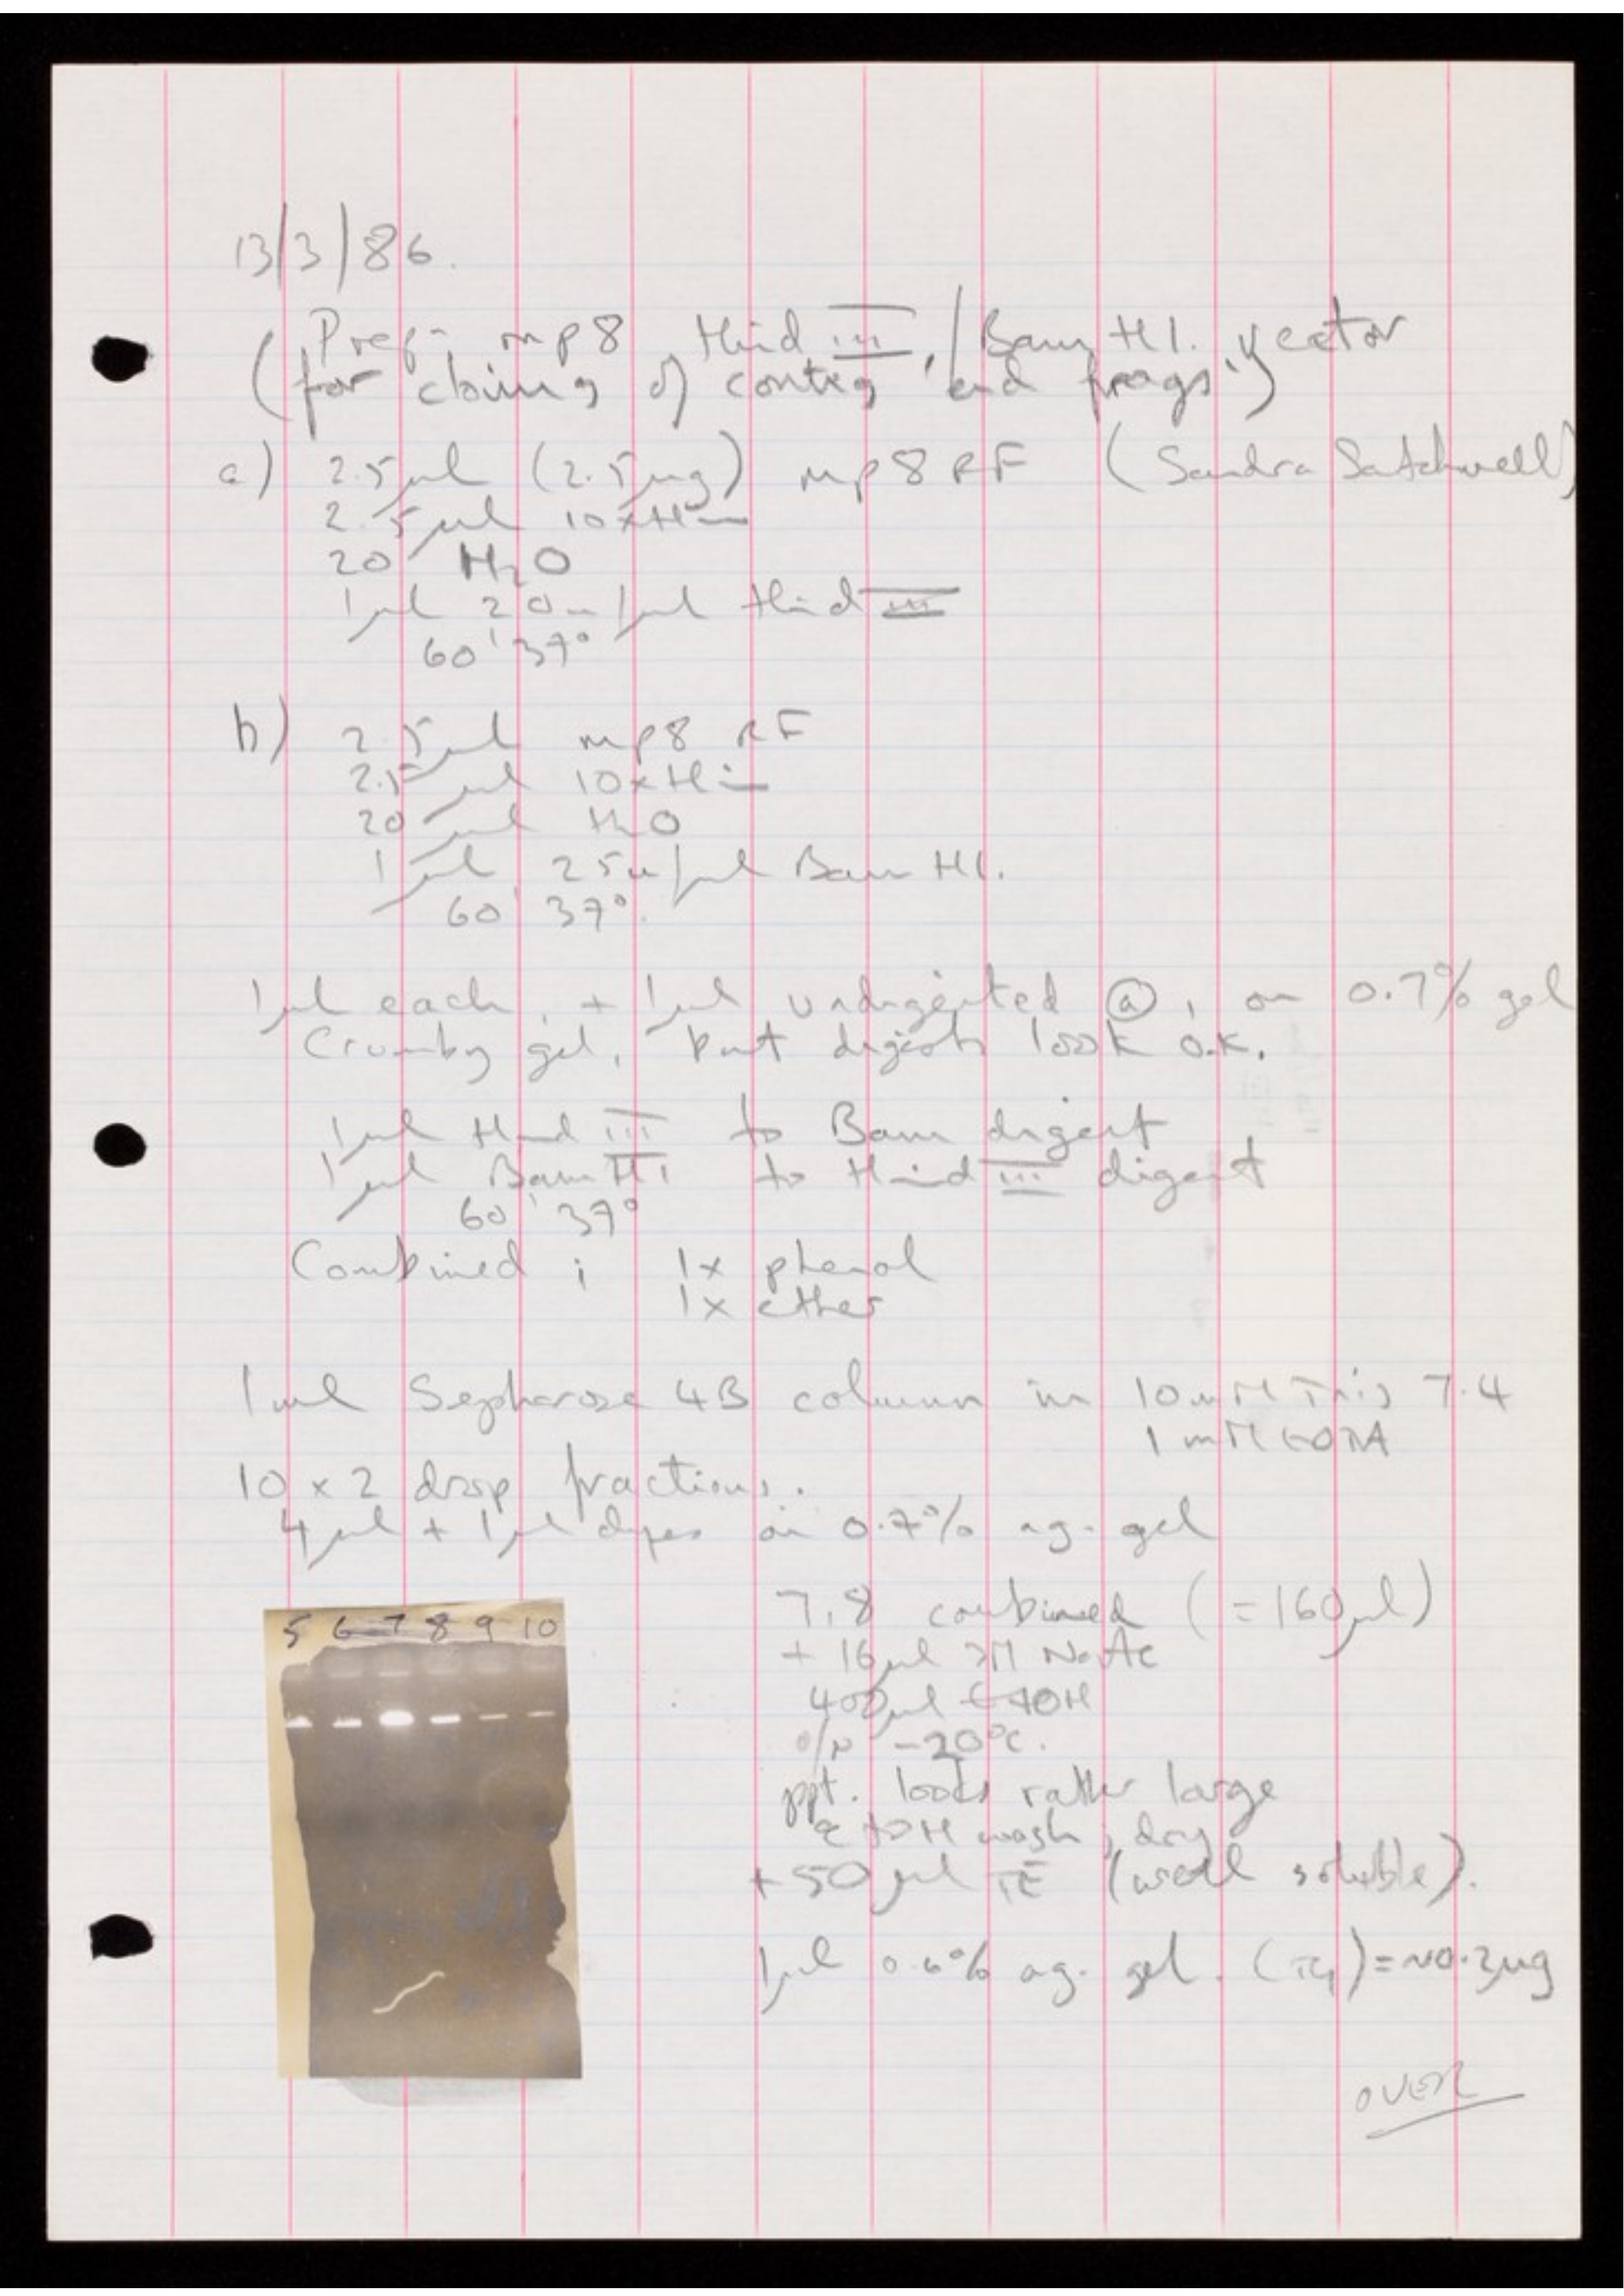 13/3/86.
Prepn mp8 Hind III / Bam H1. vector
(for cloning of contig 'end frags')
a) 2.5µl (2.5µg) mp8 RF (Sandra Satchwell)
2.5µl 10xHin
20 H2O
1µl 20u/µl Hind III
60' 37°
b) 2.5µl mp8 RF
2.5µl 10xHin
20µl H2O
1µl 25u/µl Bam H1.
60' 37°.
1µl each, + 1µl undigested (a), on 0.7% gel
Crumby gel, but digests look o.k.
1µl Hind III to Bam digest
1µl Bam H1 to Hind III digest
60' 37°
Combined ; 1x phenol
1x ether
1ml Sepharose 4B column in 10mM Tris 7.4
1mM EDTA
10 x 2 drop fractions.
4µl + 1µl dyes on 0.7% ag. gel
5 6 7 8 9 10
7,8 combined (=160µl)
+ 16µl 3M NaAc
400µl EtOH
o/n -20°C.
ppt. looks rather large
EtOH wash, dry
+50µl TE (well soluble).
1µl 0.6% ag. gel. = ~0.2µg
OVER